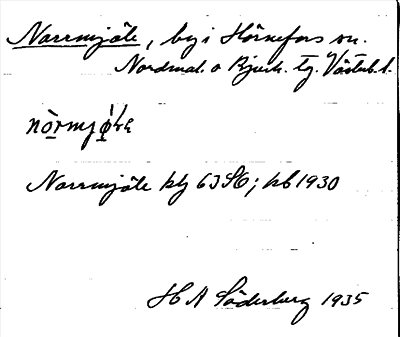 Norrmjöle, by i Hörnefors sn.
Nordmal. o Bjurh. tg. Västerb. l.
Norrmjöle kbl 63 SO; jkb 1930
H A Söderberg 1935